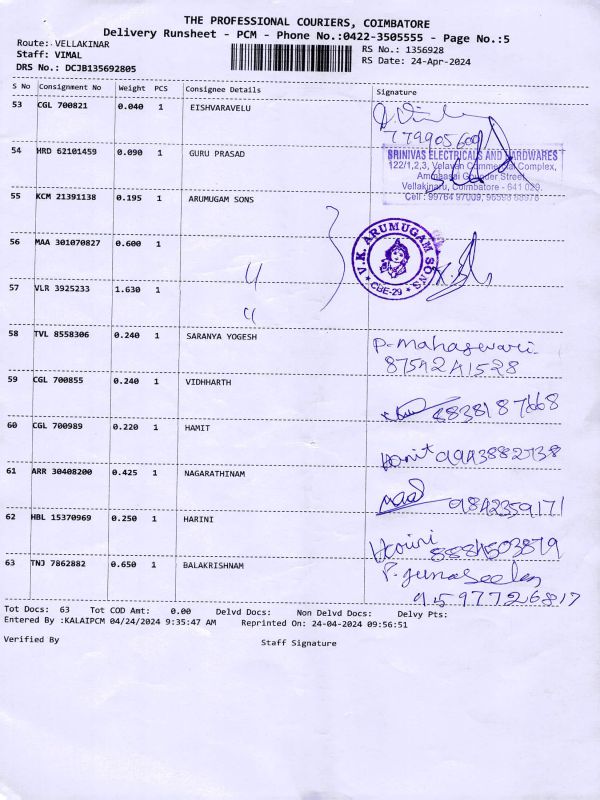 THE PROFESSIONAL COURIERS, COIMBATORE
Delivery Runsheet - PCM - Phone No.:0422-3505555 - Page No.:5
Route: VELLAKINAR
Staff: VIMAL
DRS No.: DCJB135692805
RS No.: 1356928
RS Date: 24-Apr-2024
S No Consignment No Weight PCS Consignee Details Signature
53 CGL 700821 0.040 1 EISHVARAVELU
54 HRD 62101459 0.090 1 GURU PRASAD
SRINIVAS ELECTRICALS AND HARDWARES
122/1,2,3, Velavan Commercial Complex,
Ammasai Gounder Street,
Vellakinaru, Coimbatore - 641 029.
55 KCM 21391138 0.195 1 ARUMUGAM SONS
V.K. ARUMUGAM SONS
* CBE-29 *
56 MAA 301070827 0.600 1
57 VLR 3925233 1.630 1
58 TVL 8558306 0.240 1 SARANYA YOGESH
P. Mahaswari
59 CGL 700855 0.240 1 VIDHHARTH
8838187668
60 CGL 700989 0.220 1 HAMIT
Hamit
61 ARR 30408200 0.425 1 NAGARATHINAM
9842359171
62 HBL 15370969 0.250 1 HARINI
Harini
63 TNJ 7862882 0.650 1 BALAKRISHNAM
Tot Docs: 63 Tot COD Amt: 0.00 Delvd Docs: Non Delvd Docs: Delvy Pts:
Entered By :KALAIPCM 04/24/2024 9:35:47 AM Reprinted On: 24-04-2024 09:56:51
Verified By Staff Signature